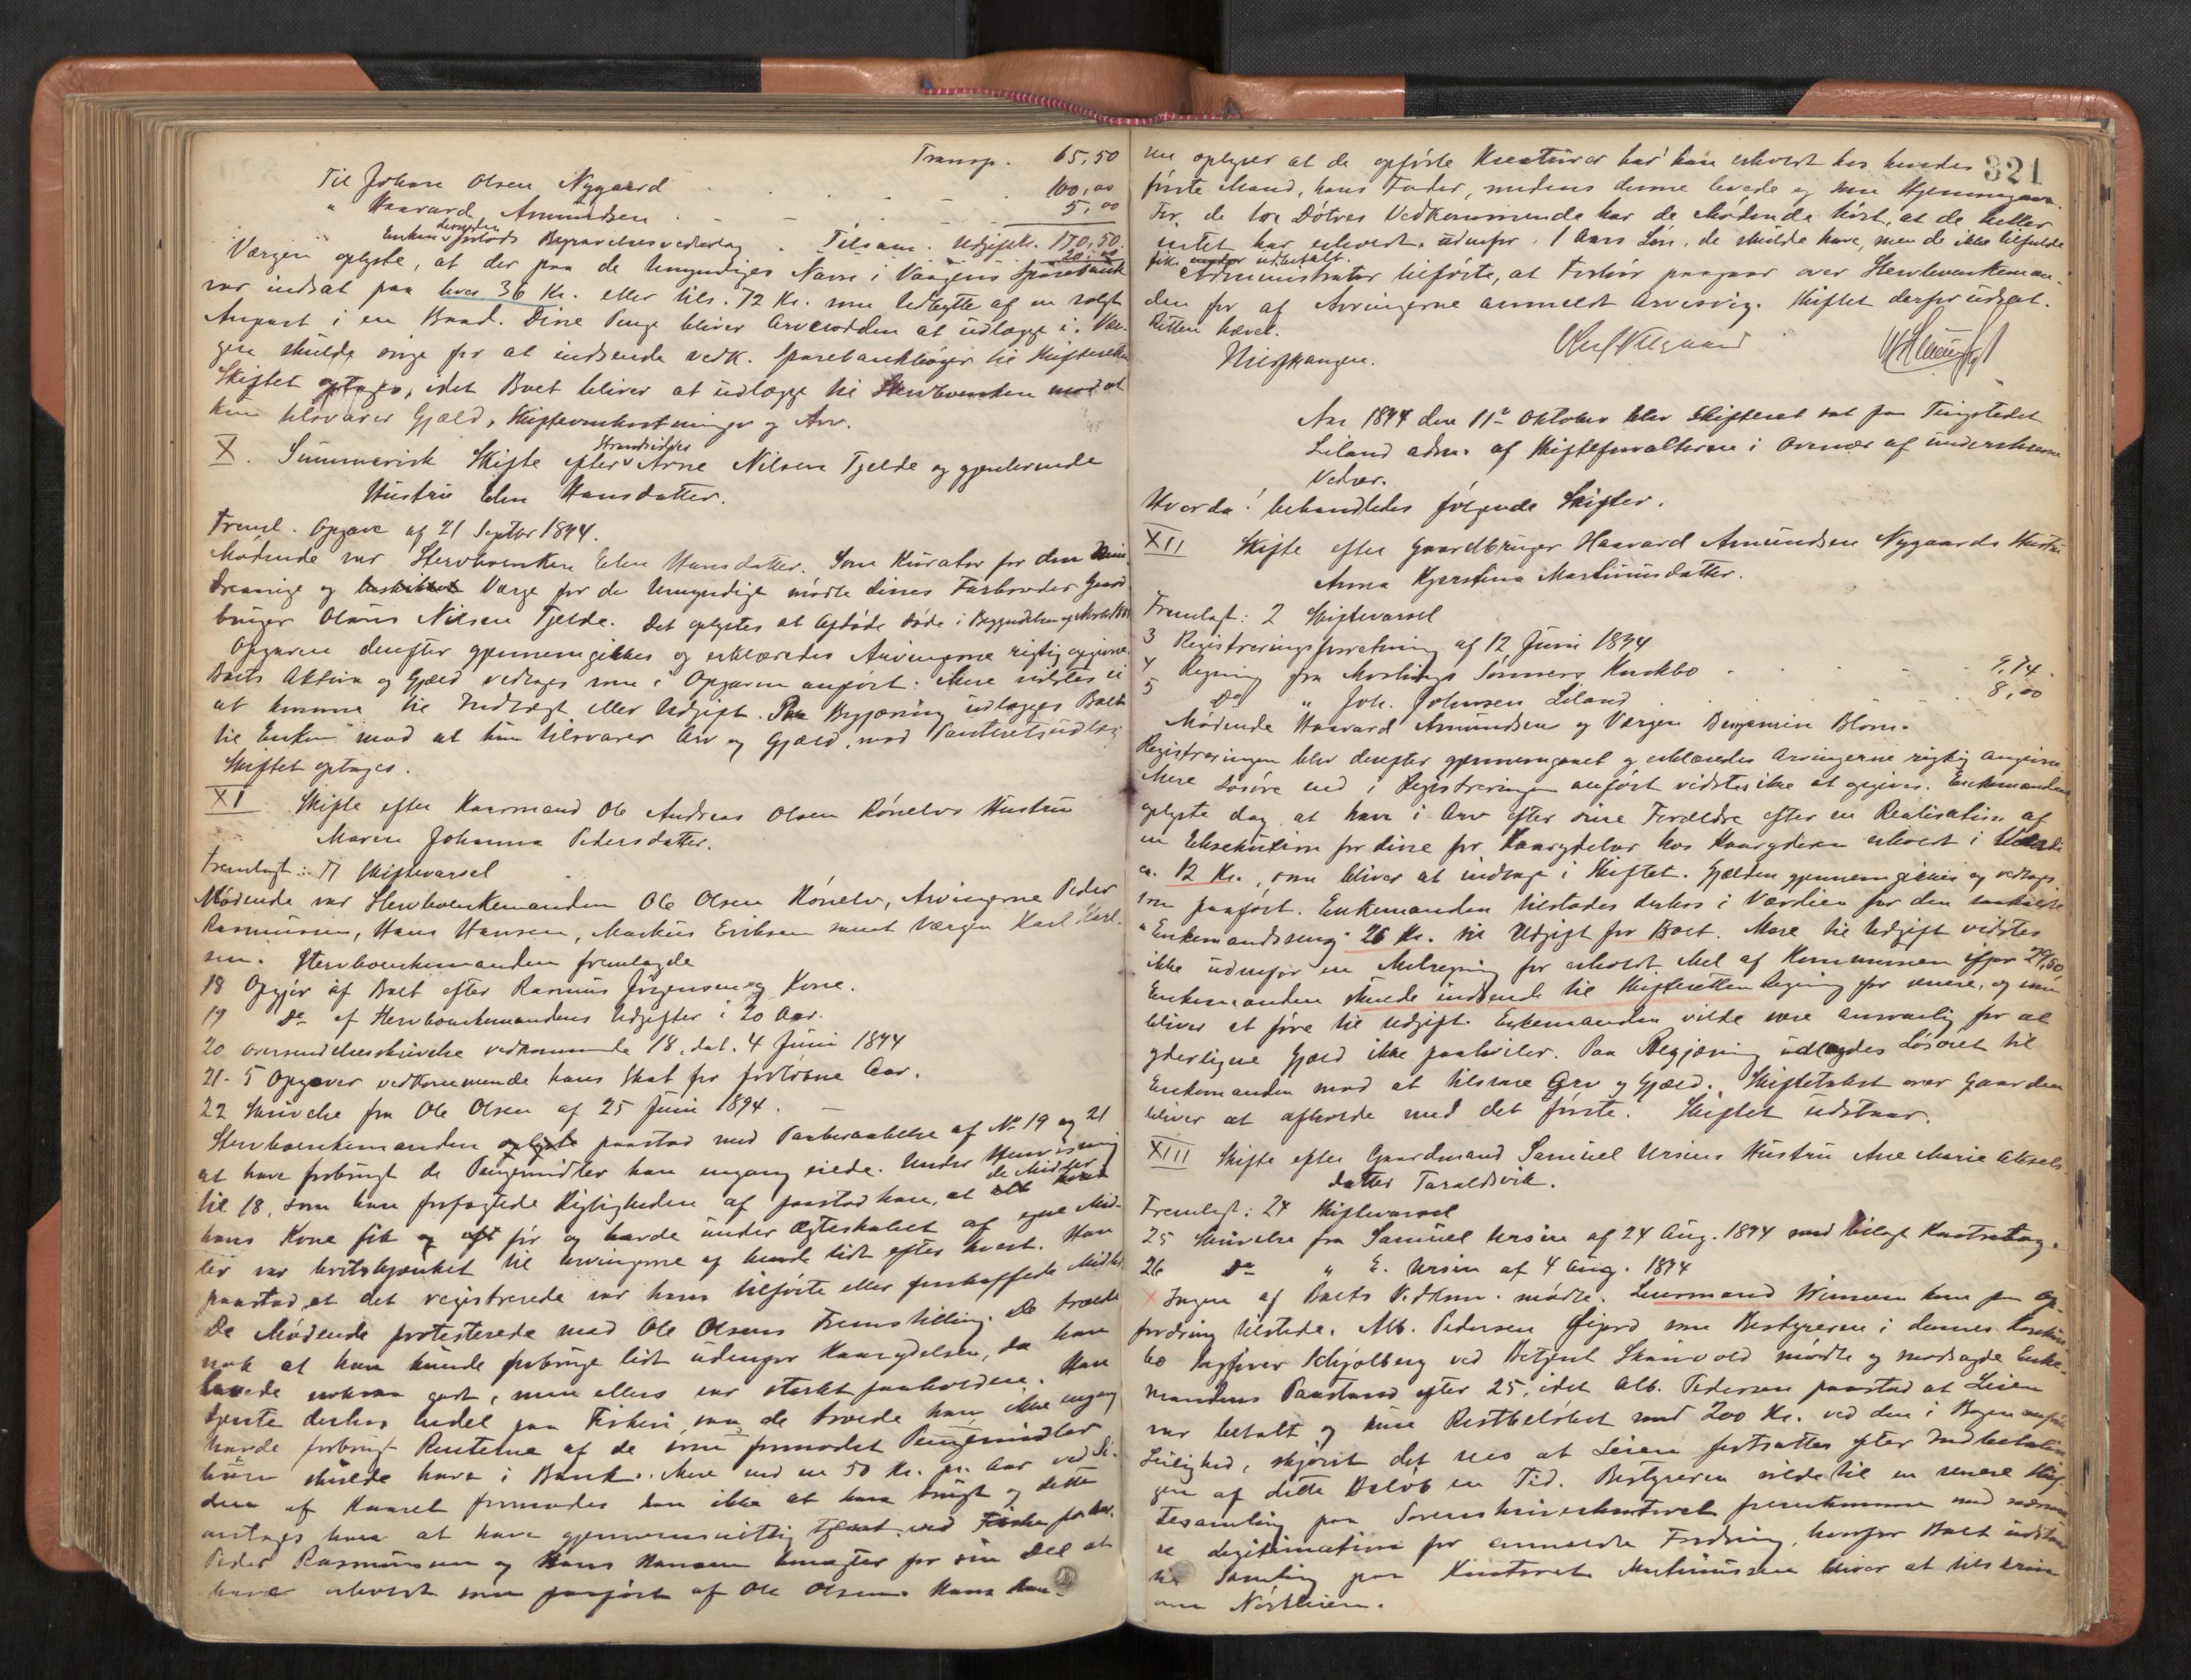 Transp. 65,50
Til Johan Olsen Nygaard 100,00
" Haavard Amundsen 5,00
Enken Begravelsesvederlag Tilsam. Udgift Kr. 170,50
20,00
Værgen oplyste, at der paa de Umyndiges Navn i Vaagens Sparebank
var indsat paa hver 36 Kr. eller tils. 72 Kr. som Udbytte af en solgt
Anpart i en Baad. Disse Penge bliver Arvelodden at udlægge i. Vær-
gen skulde sørge for at indsende vedk. Sparebankbøger til Skifteretten
Skiftet optages, idet Boet bliver at udlægge til Stervboenken mod at
hun tilsvarer Gjæld, Skifteomkostninger og Arv.
X. Summarisk Skifte efter Strandsidder Arne Nilsen Tjelde og gjenlevende
Hustru Elen Hansdatter.
Freml. Opgave af 21 Septbr 1894.
Mødende var Stervboenken Elen Hansdatter. Som Kurator for den Min-
dreaarige og Værge for de Umyndige mødte disses Farbroder Gaard
bruger Olaus Nilsen Tjelde. Det oplystes at Afdøde døde i Begyndelsen af
Opgaven derefter gjennemgikkes og erklæredes Arvingerne rigtig opgivne.
Boets Aktiva og Gjæld vedtoges som i Opgaven anført. Mere vidstes ei
at komme til Indtægt eller Udgift. Paa Begjæring udlægges Boet
til Enken mod at hun tilsvarer Arv og Gjæld, mod Panteretsudlæg
Skiftet optages.
XI Skifte efter Kaarmand Ole Andreas Olsen Rónelvs Hustru
Maren Johanna Pedersdatter.
Fremlagt: 17 Skiftevarsel
Mødende var Stervboenkemanden Ole Olsen Rónelv, Arvingerne Peder
Rasmussen, Hans Hansen, Markus Eriksen samt Værgen Karl Karl-
sen. Stervboenkemanden fremlagde
18 Opgjór af Boet efter Rasmus Jørgensen og Kone.
19 Do af Stervboenkemandens Udgifter i 20 Aar.
20 oversendelsesskrivelse vedkommende 18, dat. 4 Juni 1894
21. 5 Opgaver vedkommende hans Skat for forløbne Aar.
22 Skrivelse fra Ole Olsen af 25 Juni 1894.
Stervboenkemanden paastod med Paaberaabelse af No 19 og 21
at have forbrugt de Pengemidler han engang eiede. Under Henvisning
til 18, som han forfægtede Rigtigheden af paastod han, at de Midler
hans Kone fik og før og havde under Ægteskabet af egne Mid-
ler var bortskjænket til Arvingerne af hende lidt efter hvert. Han
paastod at det registrerede var hans tilførte eller forskaffede Midler
De Mødende protesterede mod Ole Olsens Fremstilling. De troede
nok at han kunde forbruge lidt udenfor Kaarydelsen, da han
levede noksaa godt, men ellers var sterkt paaholden. Han
tjente derhos endel paa Fiskeri, saa de troede han ikke engang
havde forbrugt Renterne af de som formodet Pengemidler
han skulde have i Bank. Mere end en 50 Kr. pr. Aar ved Si-
den af Kaaret formodes han ikke at have brugt og dette
antages han at have gjennemsnittlig tjent ved
Peder Rasmussen og Hans Hansen benægter for sin Del at
have erhvervt som paaført af Ole Olsen. Hans Han-
321
sen oplyser at de opførte Kreaturer har han erhvervt hos hendes
første Mand, hans Fader, medens denne levede og som Hjemmegave.
For de to Døtres Vedkommende har de Mødende hørt, at de heller
intet har erhvervt, udenfor 1 Aars Løn, de skulde have, men de ikke tilfulde
fik udbetalt.
Administrator tilførte, at Forhør paagaar over Stervboenkeman-
den for af Arvingerne anmeldt Arvesvig. Skiftet derfor udsat.
Retten hævet.
Aar 1894 den 11te Oktober blev Skifteret sat paa Tingstedet
Leland adm. af Skifteforvalteren i Overvær af underskrevne
Vidner.
Hvorda! behandledes følgende Skifter.
XII Skifte efter Gaardbruger Haavard Amundsen Nygaards Hustru
Anna Kjerstina Martinusdatter.
Fremlagt: 2 Skiftevarsel
3 Registreringsforretning af 12 Juni 1894
4 Regning fra Sønners Konkbo 9,74.
5 Do " Joh. Johnsen Leland 8,00
Mødende Haavard Amundsen og Værgen Benjamin Blom.
Registreringen blev derefter gjennemgaaet og erklæredes Arvingerne rigtig angivne
Mere Løsøre end i Registreringen anført vidstes ikke at opgives. Enkemanden
oplyste dog at have i Arv efter sine Forældre efter en Realisation af
en Eksekution for disse for Kaarydelser hos Kaaryderen erhvervt i
ca. 12 Kr., som bliver at indtage i Skiftet. Gjælden gjennemgikkes og vedtoges
som paaført. Enkemanden tilstodes derhos i Værdien for den saakaldte
"Enkemandsseng" 26 Kr. til Udgift for Boet. Mere til Udgift vidstes
ikke udenfor en Melregning for erholdt Mel af Kommunen ifjor 29,50
Enkemanden skulde indsende til Skifteretten Regning for senere, og som
bliver at føre til Udgift. Enkemanden vilde være ansvarlig for at
yderligere Gjæld ikke paahviler. Paa Begjæring udlagdes Løsøret til
Enkemanden mod at tilsvare Arv og Gjæld. Skiftetakst over Gaarden
bliver at afholde med det første. Skiftet udstaar.
XIII Skifte efter Gaardmand Samuel Ursins Hustru Ane Marie Aksels
datter Taraldsvik.
Fremlagt: 24 Skiftevarsel
25 Skrivelse fra Samuel Ursin af 24 Aug. 1894 med bilagt Kontrabog.
26 Do " E. Ursin af 4 Aug. 1894
Ingen af Boets Vedkom. mødte. Lensmand kun paa Op-
fordring tilstede. Alb. Pedersen Fjord som Bestyreren i dennes Konkurs-
bo Sagfører Schjølberg ved Betjent Skarvold mødte og modsagde Enke-
mandens Paastand efter 25, idet Alb. Pedersen paastod at Leien
var betalt og kun Restbeløbet med 200 Kr. ved den i Bogen anførte
Leilighed, skjønt det sees at Leien fortsattes efter Indbetalin-
gen af dette Beløb en Tid. Bestyreren vilde til en senere Skif-
tesamling paa Sorenskriverkontoret fremkomme med nærme-
re Legitimation for anmeldte Fordring, hvorfor Boet udstaar
til Samling paa Kontoret. bliver at tilskrive
om